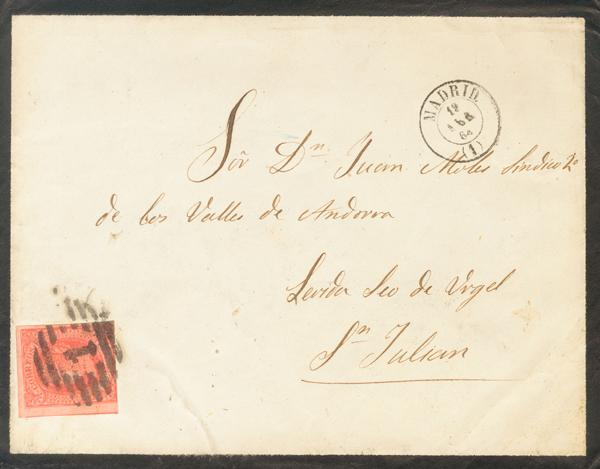 MADRID
12
64
(1)
Sör Dn Juan Moles Sindico 2o
de los Valles de Andorra
Lerida Seo de Urgel
Sn Julian
1